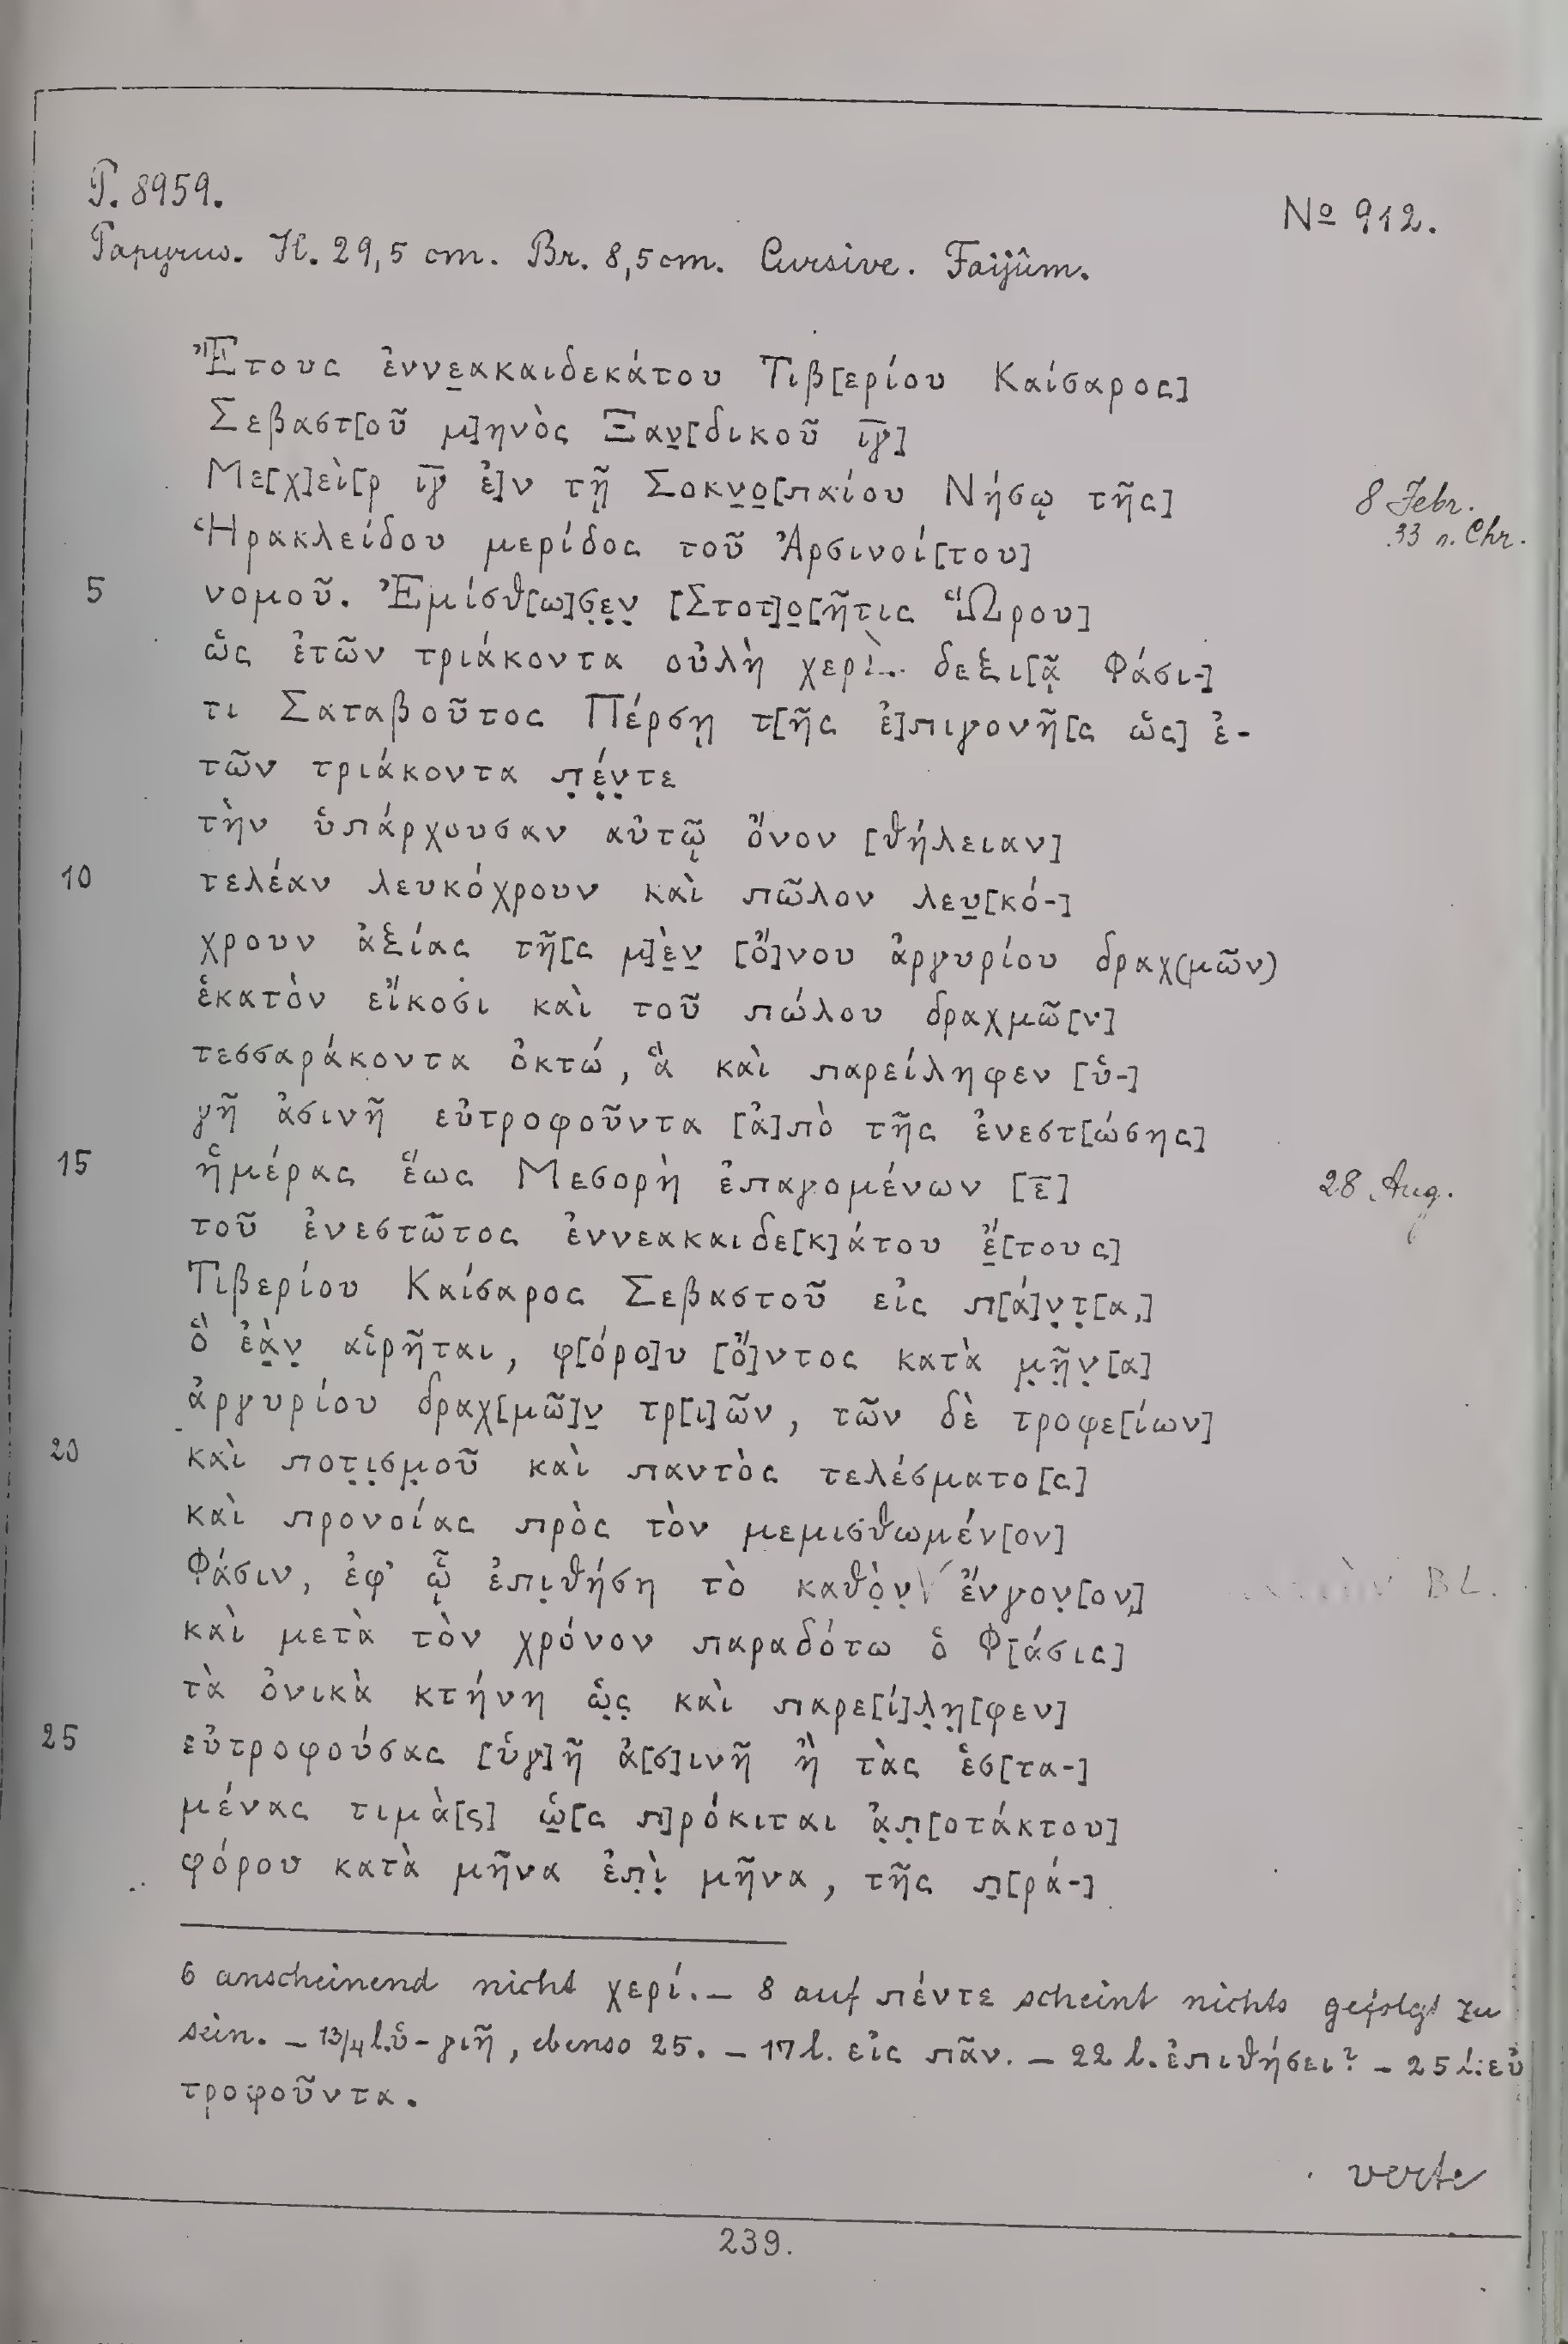 P. 8959.
Nº 912.
Papyrus. H. 29,5 cm. Br. 8,5 cm. Cursive. Faijûm.
Ἔτους ἐννε̣ακαιδεκάτου Τιβ[ερίου Καίσαρος]
Σεβαστ[οῦ μ]ηνὸς Ξαν̣[δικοῦ ῑγ̄]
Με[χ]εὶ[ρ ῑγ̄ ἐ]ν τῇ Σοκν̣ο̣[παίου Νήσῳ τῆς]
8 Febr.
33 n. Chr.
Ἡρακλείδου μερίδος τοῦ Ἀρσινοί[του]
5 νομοῦ. Ἐμίσθ[ω]σ̣ε̣ν̣ [Στοτ]ο̣[ῆτις Ὥρου]
ὡς ἐτῶν τριάκοντα οὐλὴ χερὶ... δεξι[ᾷ Φάσι-]
τι Σαταβοῦτος Πέρσῃ τ[ῆς ἐ]πιγονῆ[ς ὡς] ἐ-
τῶν τριάκοντα π̣έ̣ν̣τε
τὴν ὑπάρχουσαν αὐτῷ ὄνον [θήλειαν]
10 τελέαν λευκόχρουν καὶ πῶλον λευ̣[κό-]
χρουν ἀξίας τῆ[ς μ]ὲ̣ν̣ [ὄ]νου ἀργυρίου δραχ(μῶν)
ἑκατὸν εἴκοσι καὶ τοῦ πώλου δραχμῶ[ν]
τεσσαράκοντα ὀκτώ, ἃ καὶ παρείληφεν [ὑ-]
γῆ ἀσινῆ εὐτροφοῦντα [ἀ]πὸ τῆς ἐνεστ[ώσης]
15 ἡμέρας ἕως Μεσορὴ ἐπαγομένων [ε̄]
28 Aug.
τοῦ ἐνεστῶτος ἐννεακαιδε[κ]άτου ἔ̣[τους]
Τιβερίου Καίσαρος Σεβαστοῦ εἰς π[ά]ν̣τ̣[α,]
ὃ ἐὰ̣ν̣ αἱρῆται, φ[όρο]υ [ὄ]ντος κατὰ μ̣ῆ̣ν̣[α]
ἀργυρίου δραχ[μῶ]ν̣ τρ[ι]ῶν, τῶν δὲ τροφε[ίων]
20 καὶ ποτ̣ι̣σμ̣οῦ καὶ παντὸς τελέσματο[ς]
καὶ προνοίας πρὸς τὸν μεμισθωμέν[ον]
Φάσιν, ἐφ' ᾧ ἐπι̣θήση τὸ καθὸ̣ν̣ ἔνγον̣[ον,]
BL.
καὶ μετὰ τὸν χρόνον παραδότω ὁ Φ[άσις]
τὰ ὀνικὰ κτήνη ὡ̣ς̣ καὶ παρε[ί]λ̣η̣[φεν]
25 εὐτροφούσας [ὑγ]ῆ ἀ[σ]ινῆ ἢ τὰς ἑσ[τα-]
μένας τιμὰ[ς] ὡ̣[ς π]ρόκιται ἀ̣π̣[οτάκτου]
φόρου κατὰ μῆνα ἐπ̣ὶ̣ μῆνα, τῆς π̣[ρά-]
6 anscheinend nicht χερί. — 8 auf πέντε scheint nichts gefolgt zu
sein. — 13/4 l. ὑ-γιῆ, ebenso 25. — 17 l. εἰς πᾶν. — 22 l. ἐπιθήσει? — 25 l. εὐ
τροφοῦντα.
verte
239.